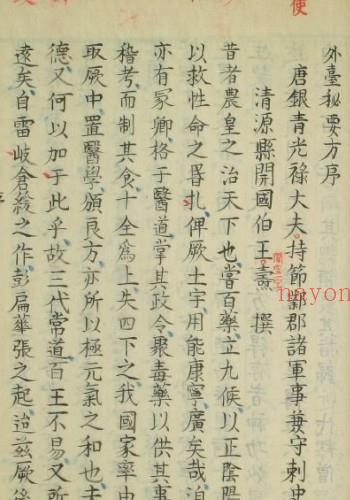 使
外臺秘要方序
唐銀青光祿大夫持節鄴郡諸軍事兼守刺史
清源縣開國伯王燾 撰
昔者農皇之治天下也嘗百藥立九候以正陰陽
以救性命之昬札俾厥土宇用能康寧廣矣哉洎
亦有冢卿格于醫道掌其政令聚毒藥以供其事
稽考而制其食十全爲上失四下之我國家率由
取厥中置醫學頒良方亦所以極元氣之和也夫
德又何以加于此乎故三代常道百王不易又所
遠矣自雷岐倉緩之作彭扁華張之起迨茲厥後
nayon